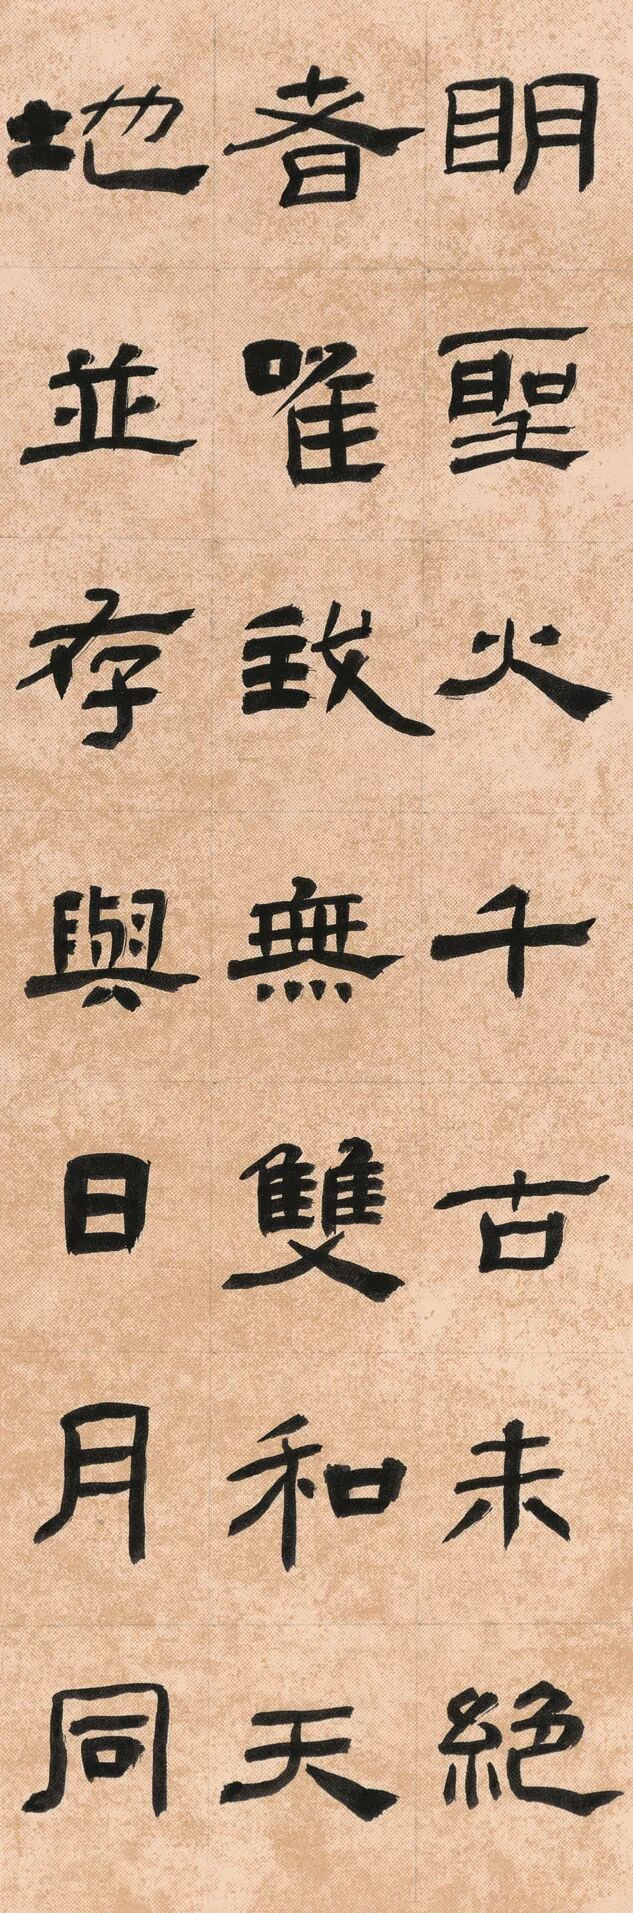 明聖火千古未絕
者唯我無雙和天
地並存與日月同